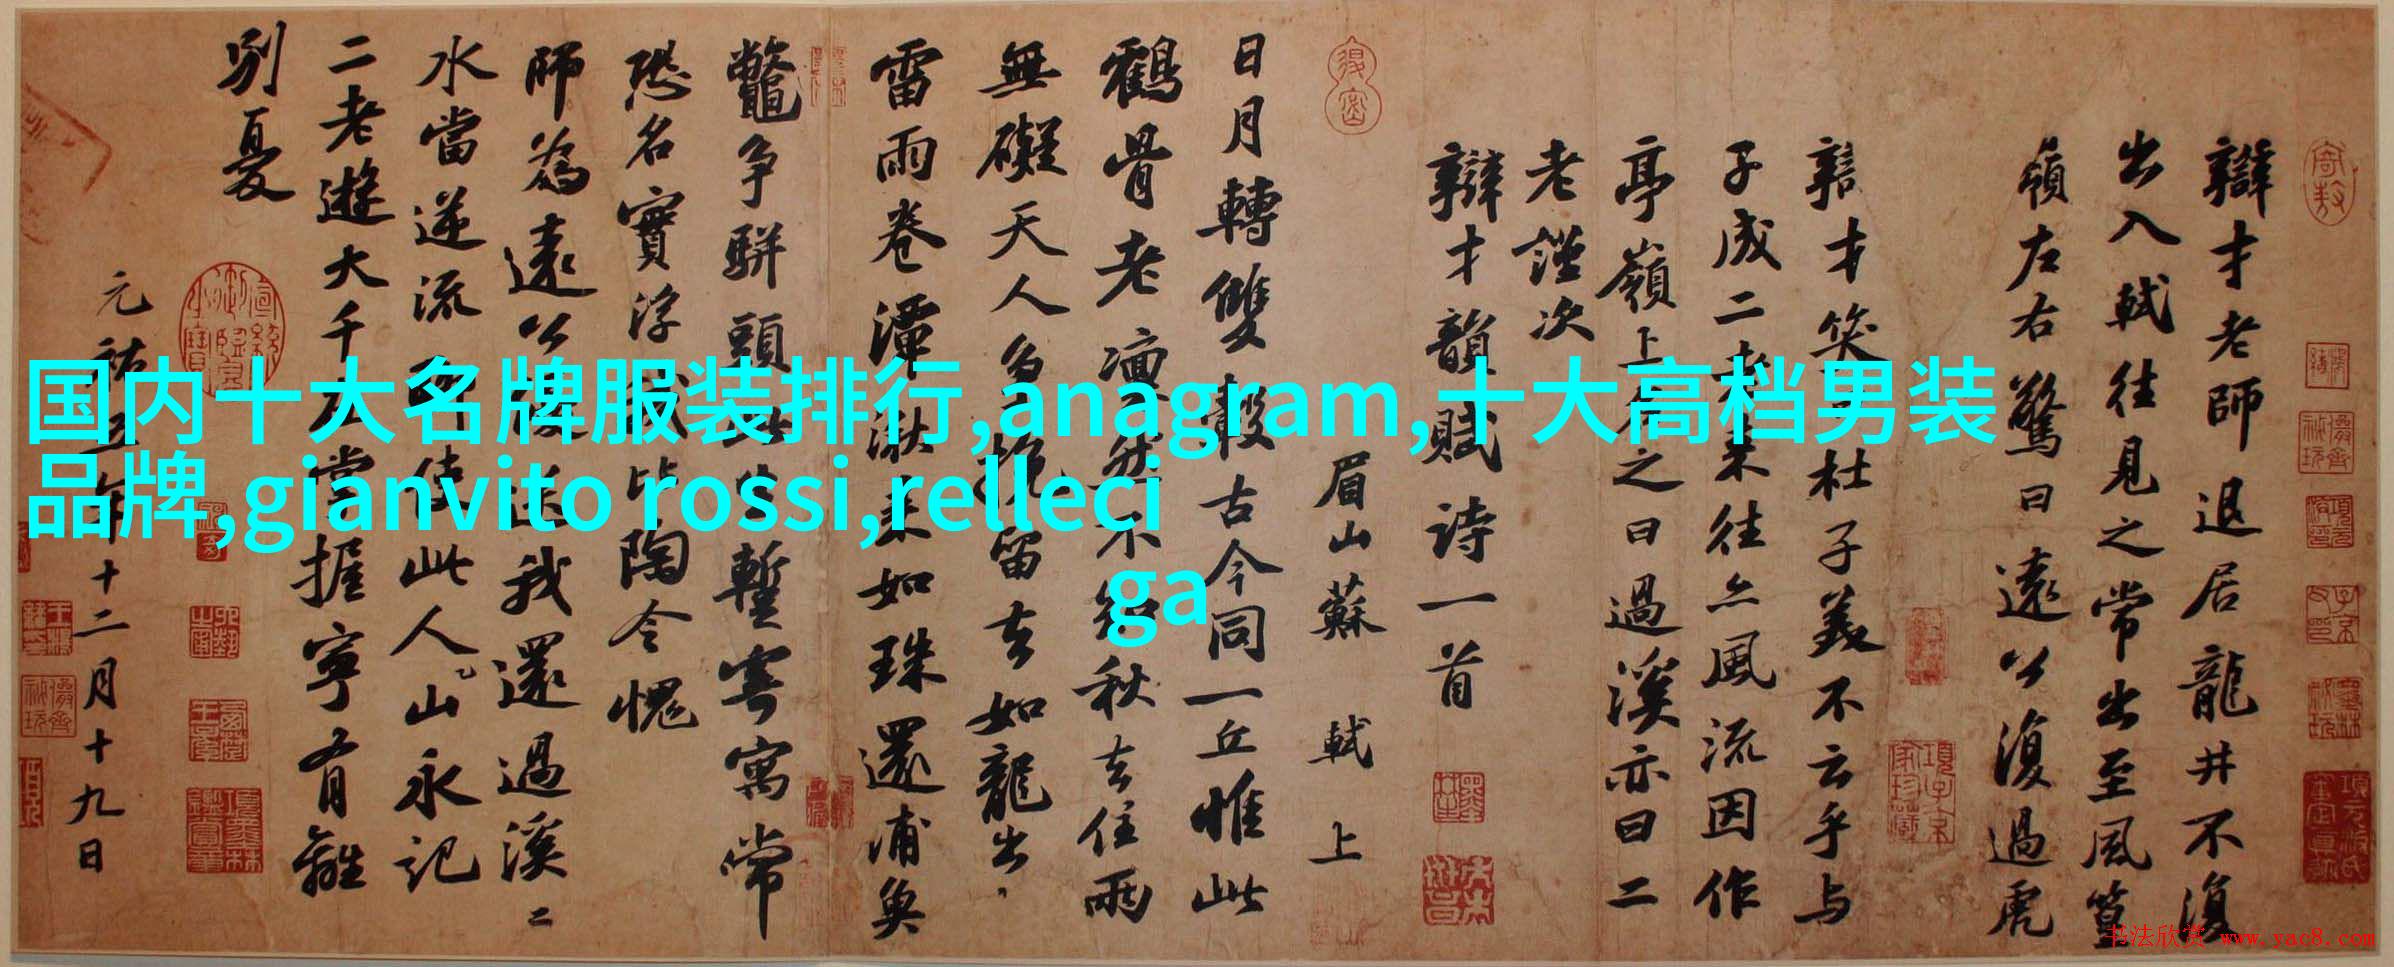 国内十大名牌服装排行,anagram,十大高档男装
品牌,gianvito rossi,relleci
ga
辯才老師退居龍井不復
出入軾往見之常出至風篁
嶺左右驚曰遠公復過虎
辯才笑曰杜子美不云乎与
子成二老來往亦風流因作
亭嶺上名之曰過溪亦曰二
老謹次
辯才韻賦詩一首
眉山蘇 軾 上
日月轉雙轂古今同一丘惟此
鶴骨老凛然不知秋去住兩
無礙天人爭挽留去如龍出
雷雨卷潭湫來如珠還浦魚
鼈爭駢頭此生暫寄寓常
恐名實浮我比陶令愧
師為遠公優送我還過溪二
水當逆流聊使此人山永記
二老遊大千在掌握寧有離
別憂
元祐五年十二月十九日
书法欣赏 www.yac8.com